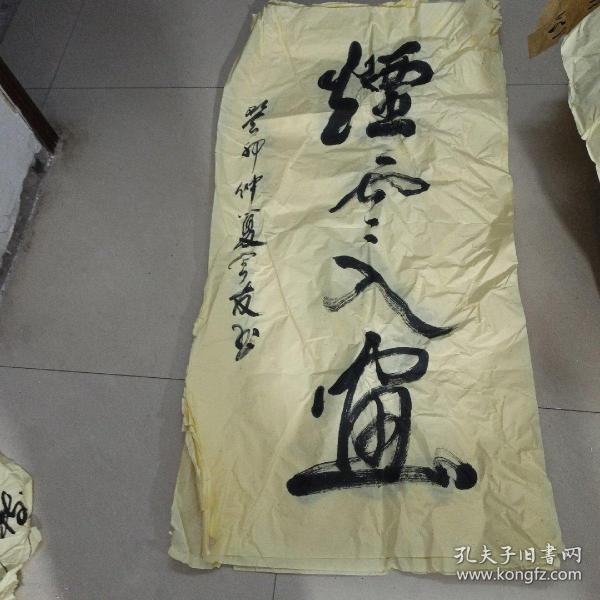 煙雲入畫
癸卯仲夏友书
孔夫子旧书网
www.kongfz.com